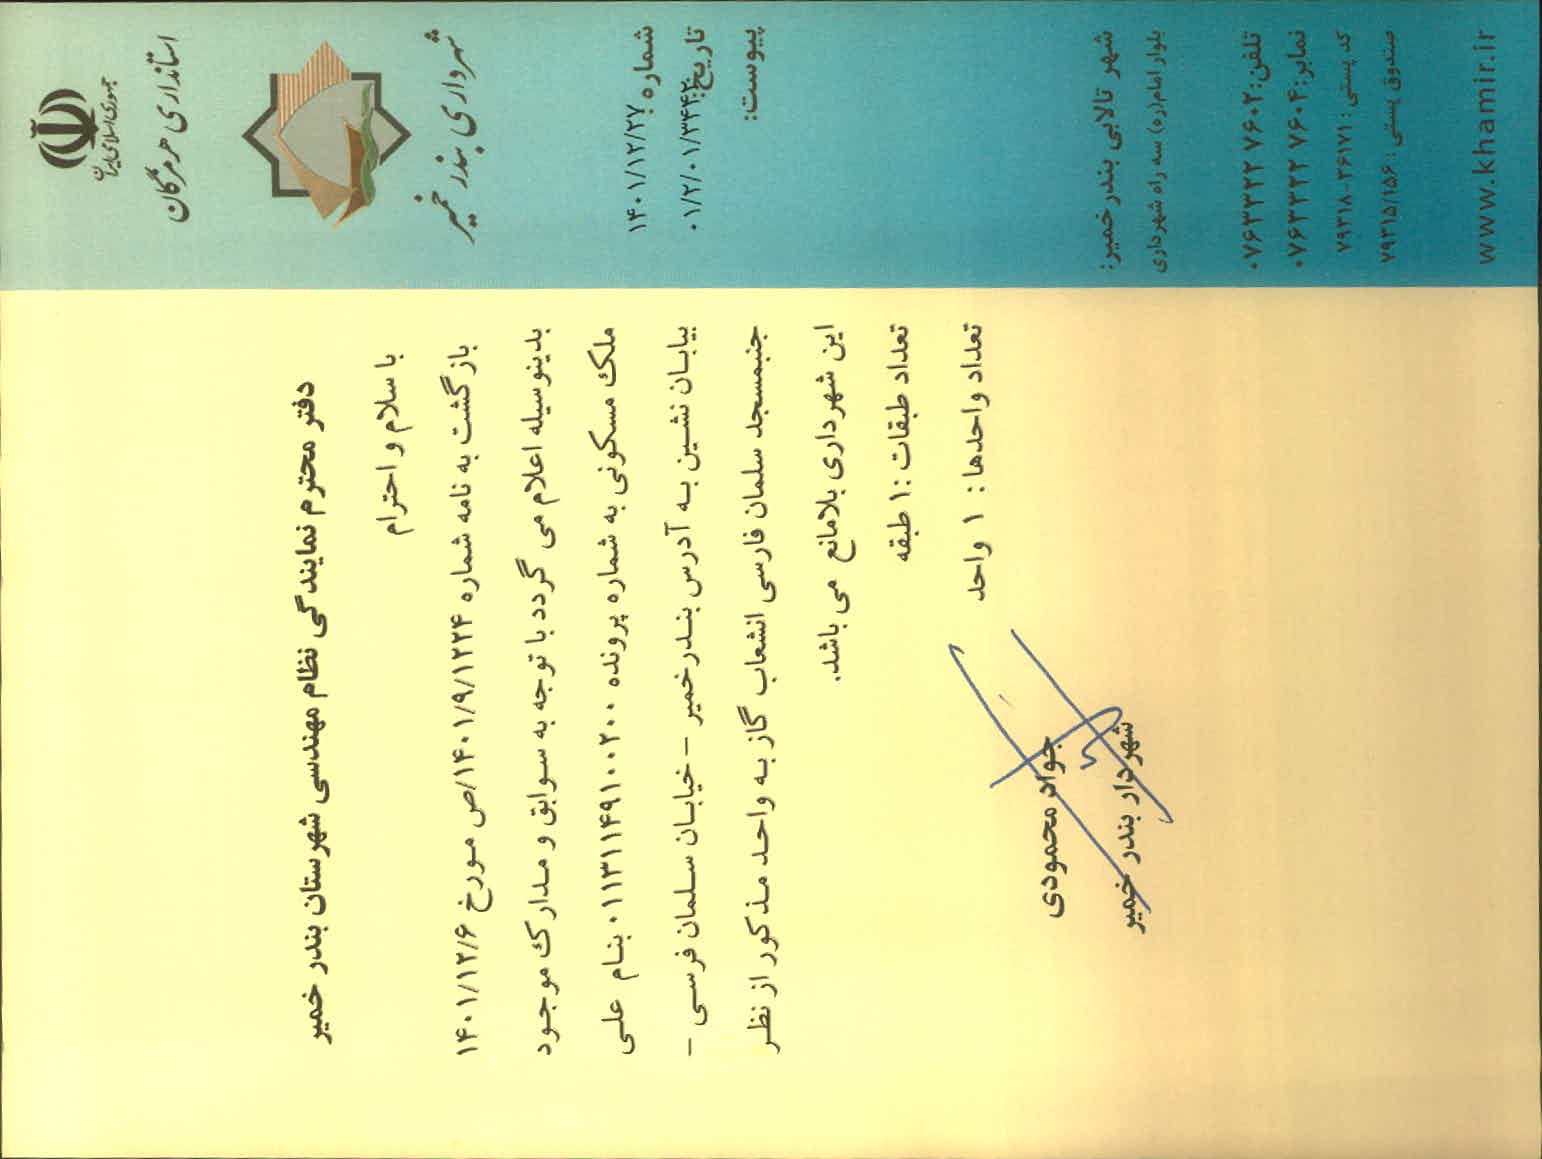 جمهوری اسلامی ایران
استانداری هرمزگان
شهرداری بندر خمیر
شماره:
۱۴۰۱/۱۲/۲۷
تاریخ:
۰۱/۲/۰۱/۳۴۴۲
پیوست:
شهر تالابی بندر خمیر:
بلوار امام(ره) سه راه شهرداری
تلفن: ۰۷۶۳۳۲۲ ۷۶۰۲
نمابر: ۰۷۶۳۳۲۲ ۷۶۰۴
کد پستی: ۷۹۳۱۸-۳۶۱۷۱
صندوق پستی: ۷۹۳۱۵/۱۵۶
www.khamir.ir
دفتر محترم نمایندگی نظام مهندسی شهرستان بندر خمیر
با سلام و احترام
بازگشت به نامه شماره ۱۴۰۱/۹/۱۲۲۴/ص مورخ ۱۴۰۱/۱۲/۶
بدینوسیله اعلام می گردد با توجه به سوابق و مدارک موجود
ملک مسکونی به شماره پرونده ۰۱۱۳۱۱۴۹۱۰۰۲۰۰ بنام علی
بیابان نشین به آدرس بندرخمیر -خیابان سلمان فرسی -
جنبمسجد سلمان فارسی انشعاب گاز به واحد مذکور از نظر
این شهرداری بلامانع می باشد.
تعداد طبقات :۱ طبقه
تعداد واحدها : ۱ واحد
جواد محمودی
شهردار بندر خمیر